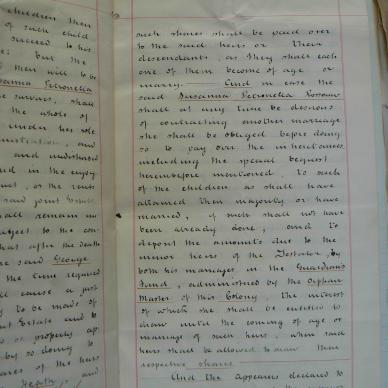 children then
of such child
succeed to his
but the
men will be
Susanna Petronella
survivor, shall
the whole of
under her sole
administration, and
and understood
in the enjoy
or the rents
said joint Estate
shall remain un
subject to the con
that after the death
the said George
the time required
shall cause a just
to be made of
Estate and to
or property ap
by so doing to
shares of the heirs
Health, and
such shares shall be paid over
to the said heirs or their
descendants, as they shall each
one of them become of age or
marry. And in case the
said Susanna Petronella Rossouw
shall at any time be desirous
of contracting another marriage
she shall be obliged before doing
so to pay over the inheritances
including the special bequest
hereinbefore mentioned, to such
of the children as shall have
attained their majority or have
married, if such shall not have
been already done, and to
deposit the amounts due to the
minor heirs of the Testator, by
both his marriages, in the Guardian's
Fund, administered by the Orphan
Master of this Colony, the interest
of which she shall be entitled to
draw until the coming of age or
marriage of such heirs, when said
heirs shall be allowed to draw their
respective shares.
And the appearers declared to